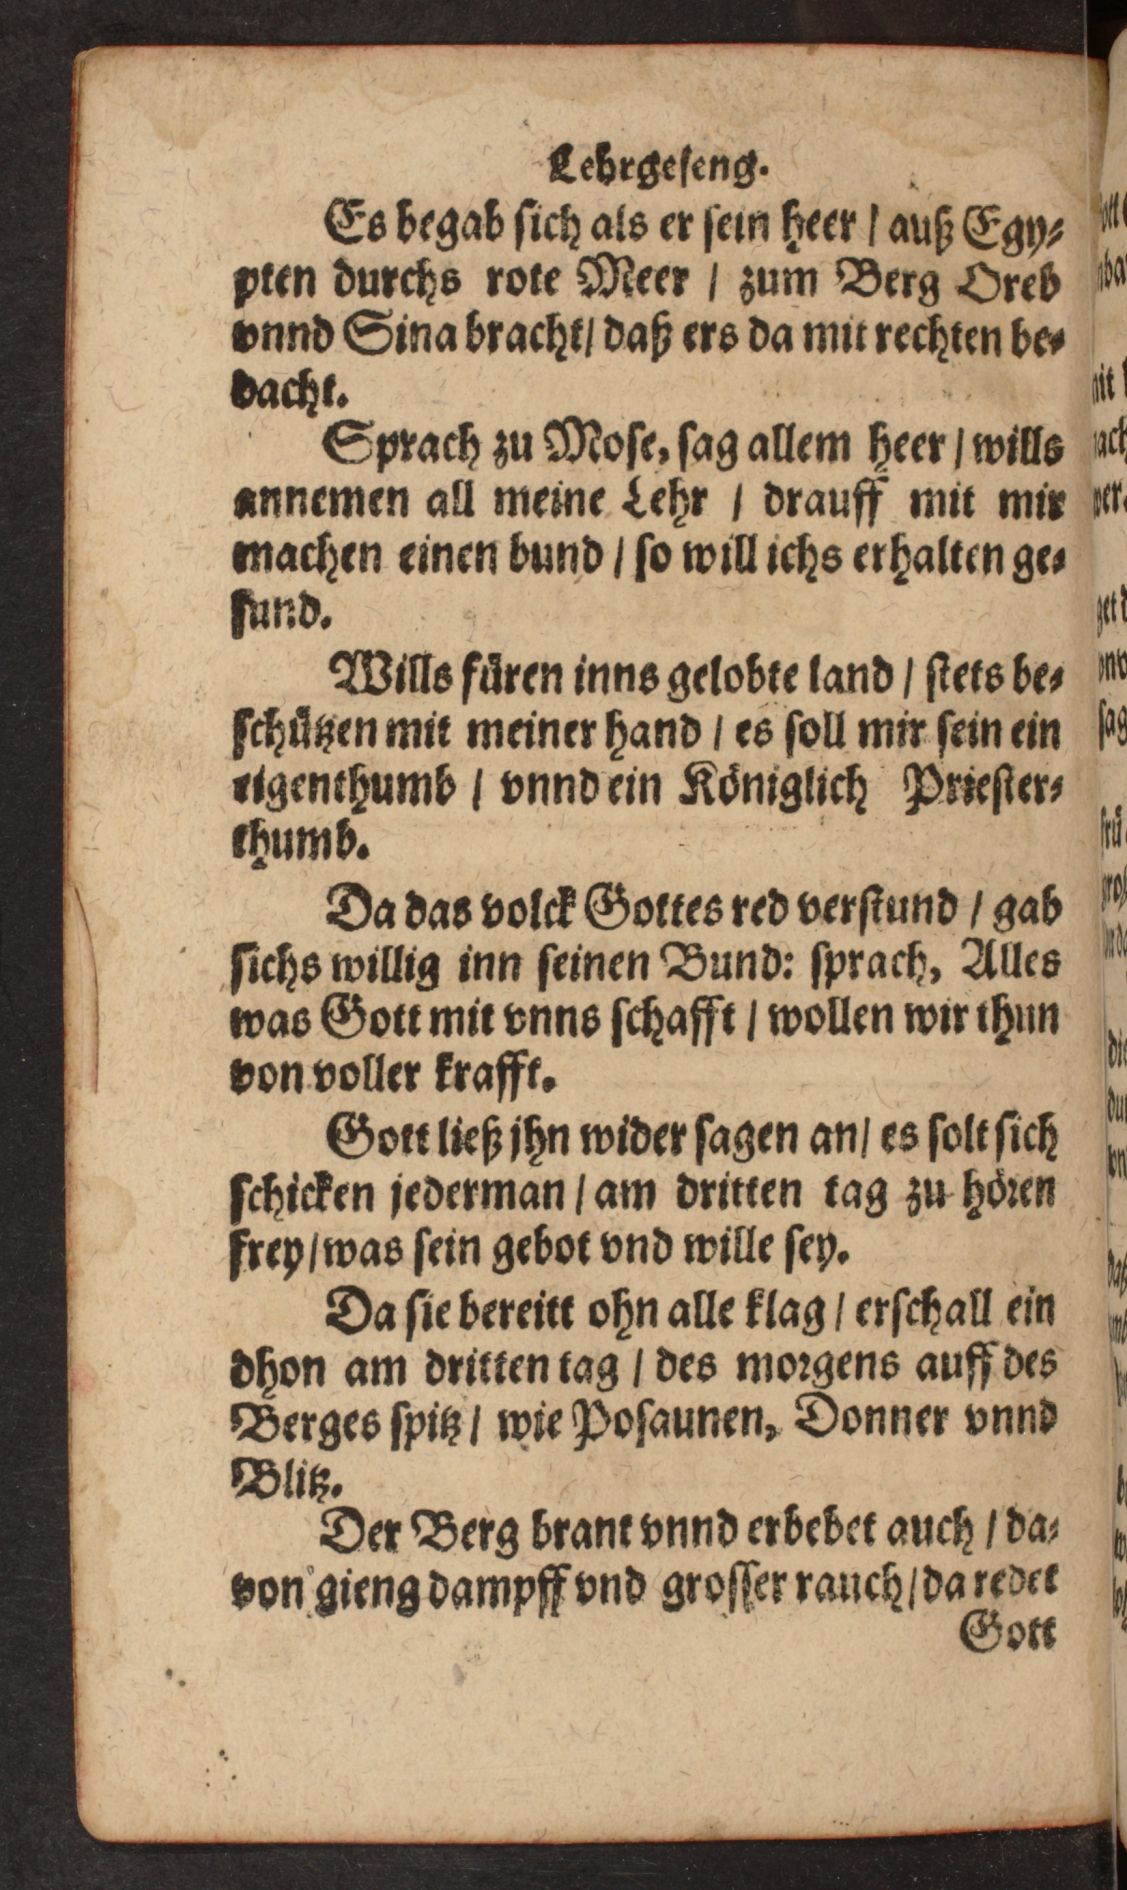 Lehrgeseng.
Es begab sich als er sein heer / auß Egy⸗
pten durchs rote Meer / zum Berg Oreb
vnnd Sina bracht / daß ers da mit rechten be⸗
dacht.
Sprach zu Mose, sag allem heer / wills
annemen all meine Lehr / drauff mit mir
machen einen bund / so will ichs erhalten ge⸗
sund.
Wills füren inns gelobte land / stets be⸗
schützen mit meiner hand / es soll mir sein ein
eigenthumb / vnnd ein Königlich Priester⸗
thumb.
Da das volck Gottes red verstund / gab
sichs willig inn seinen Bund: sprach, Alles
was Gott mit vnns schafft / wollen wir thun
von voller krafft.
Gott ließ jhn wider sagen an / es solt sich
schicken jederman / am dritten tag zu hören
frey / was sein gebot vnd wille sey.
Da sie bereitt ohn alle klag / erschall ein
dhon am dritten tag / des morgens auff des
Berges spitz / wie Posaunen, Donner vnnd
Blitz.
Der Berg brant vnnd erbebet auch / da⸗
von gieng dampff vnd grosser rauch / da redet
Gott